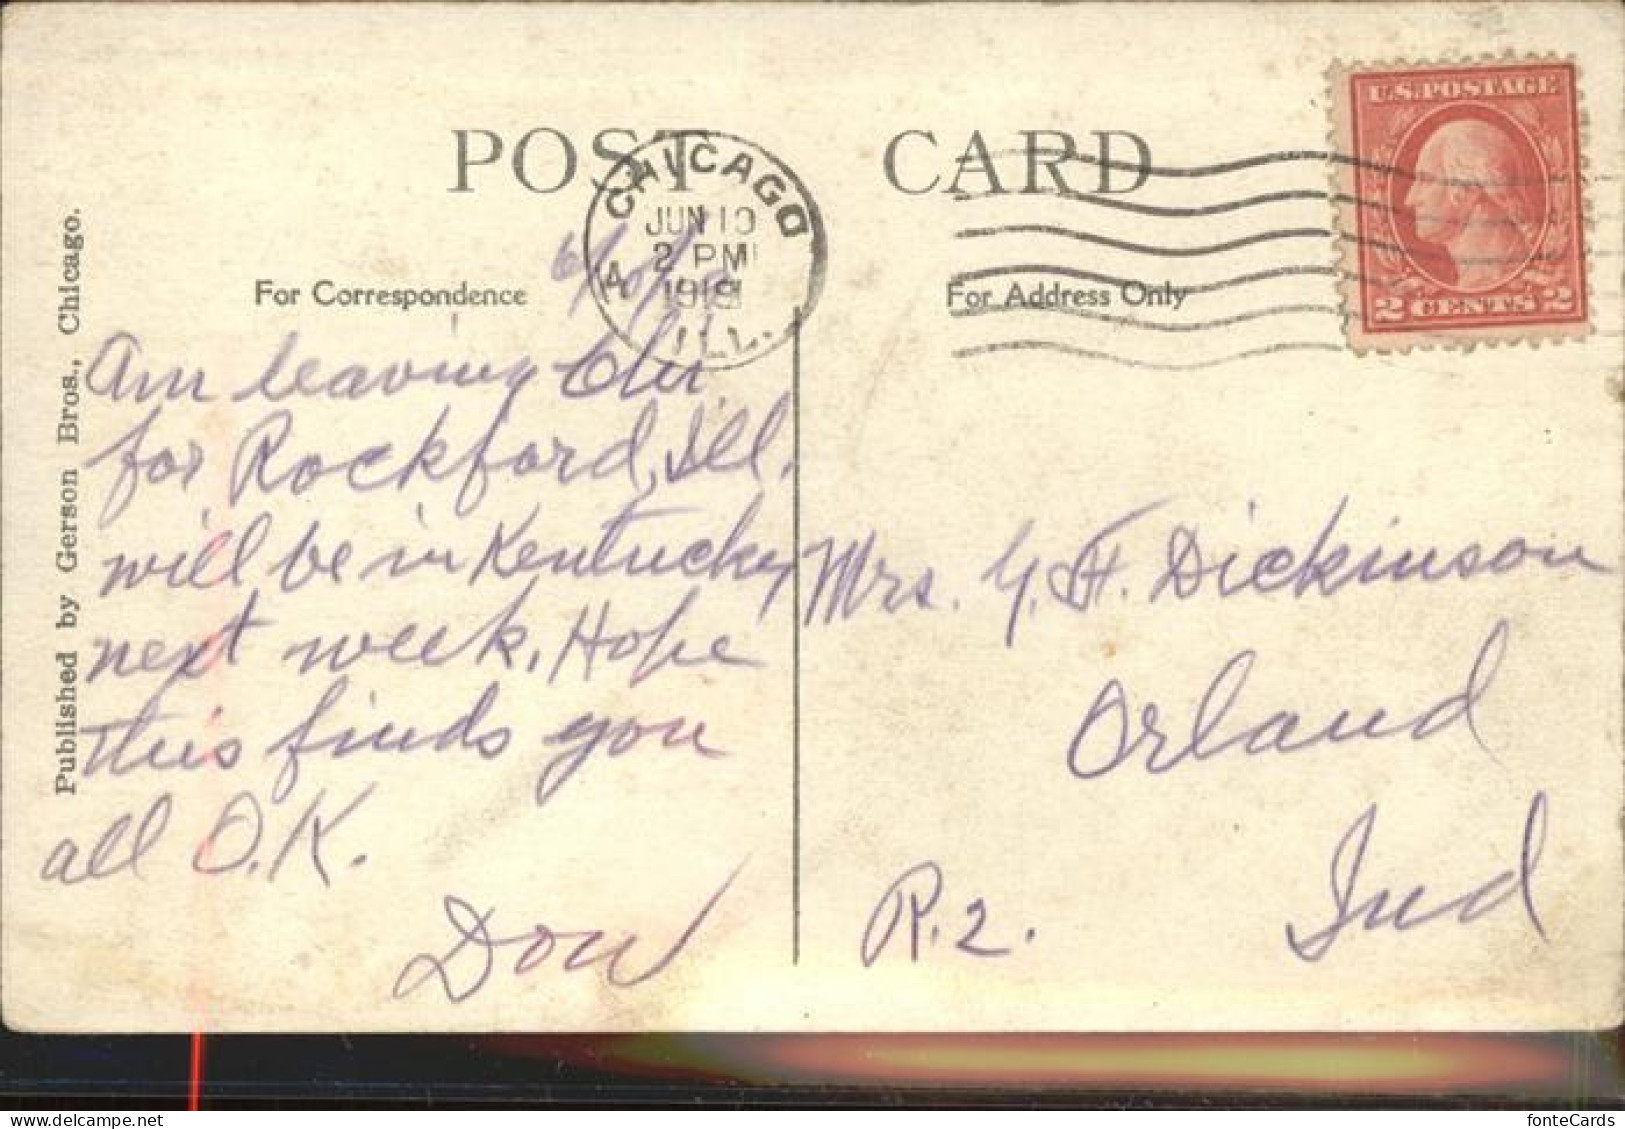 POST CARD
CHICAGO
JUN 10
2 PM
1919
ILL.
A
U.S. POSTAGE
2 CENTS 2
For Correspondence
For Address Only
Published by Gerson Bros., Chicago.
Am leaving Chi,
for Rockford, Ill.
will be in Kentucky
next week. Hope
this finds you
all O.K.
Don
Mrs. G. H. Dickinson
Orland
Ind
R.2.
fonteCards